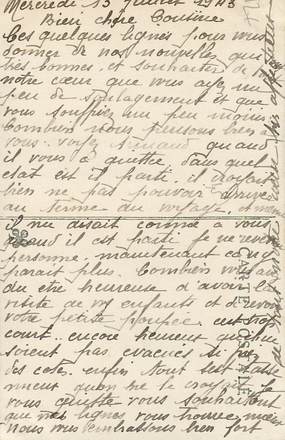 Mercredi 15 juillet 1943
Bien chère Cousine
Ces quelques lignes pour vous
donner de nos nouvelles qui
très bonnes. et souhaiter de
notre cœur que vous ayez un
peu de soulagement et que
vous souffrez un peu moins
Combien nous pensons bien à
vous. voyez quand
il vous a quittée. dans quel
état est il parti. il croyait
bien ne pas pouvoir arriver
au terme du voyage.
il me disait comme à vous
quand il est parti je ne reverrai
personne. maintenant
parait plus. Combien vous avez
du etre heureuse d'avoir la
visite de vos enfants et d'avoir
votre petite poupée.
court.. encore heureux qu'elles
soient pas évacuées si
des cotés. enfin tout
mieux qu'on ne le croyait. Je
vous quitte vous souhaitant
que mes lignes vous trouve mieux
nous vous embrassons bien fort
CARTE POSTALE